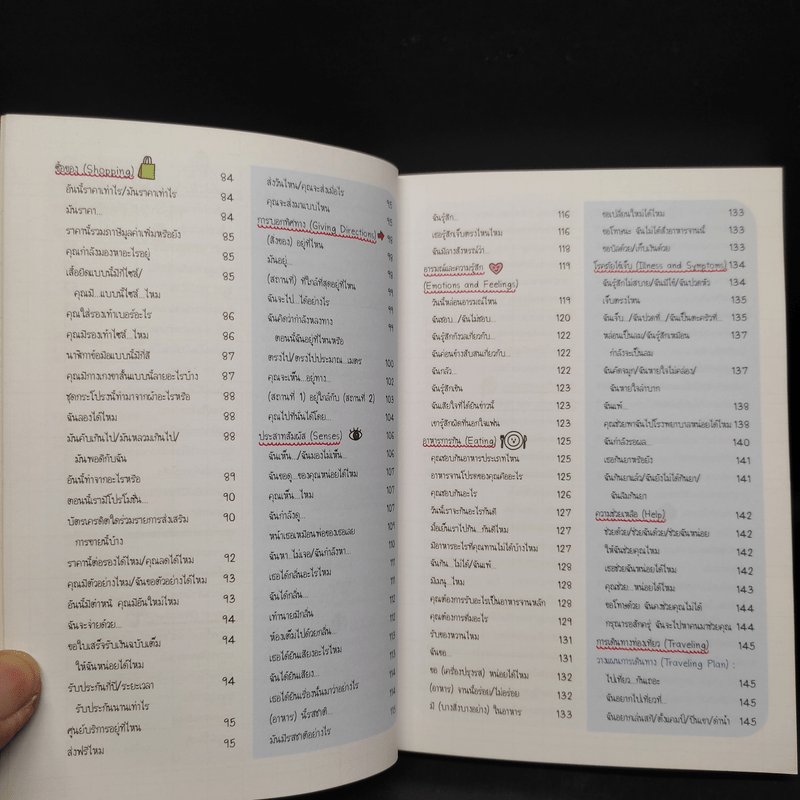 ซื้อของ (Shopping) 84
อันนี้ราคาเท่าไร/มันราคาเท่าไร 84
มันราคา... 84
ราคานี้รวมภาษีมูลค่าเพิ่มหรือยัง 85
คุณกำลังมองหาอะไรอยู่ 85
เสื้อยืดแบบนี้มีกี่ไซส์/ 85
คุณมี...แบบนี้ไซส์...ไหม
คุณใส่รองเท้าเบอร์อะไร 86
คุณมีรองเท้าไซส์...ไหม 86
นาฬิกาข้อมือแบบนี้มีกี่สี 87
คุณมีกางเกงขาสั้นแบบนี้ลายอะไรบ้าง 87
ชุดกระโปรงนี้ทำมาจากผ้าอะไรหรือ 88
ฉันลองได้ไหม 88
มันคับเกินไป/มันหลวมเกินไป/ 88
มันพอดีกับฉัน
อันนี้ทำจากอะไรหรือ 89
ตอนนี้เรามีโปรโมชั่น... 90
บัตรเครดิตใดร่วมรายการส่งเสริม 90
การขายนี้บ้าง
ราคานี้ต่อรองได้ไหม/คุณลดได้ไหม 92
คุณมีตัวอย่างไหม/ฉันขอตัวอย่างได้ไหม 93
อันนี้มีตำหนิ คุณมีอันใหม่ไหม 93
ฉันจะจ่ายด้วย... 94
ขอใบเสร็จรับเงินฉบับเต็ม 94
ให้ฉันหน่อยได้ไหม
รับประกันกี่ปี/ระยะเวลา 94
รับประกันนานเท่าไร
ศูนย์บริการอยู่ที่ไหน 95
ส่งฟรีไหม 95
ส่งวันไหน/คุณจะส่งเมื่อไร 95
คุณจะส่งมาแบบไหน 95
การบอกทิศทาง (Giving Directions) 98
(สิ่งของ) อยู่ที่ไหน 98
มันอยู่... 98
(สถานที่) ที่ใกล้ที่สุดอยู่ที่ไหน 99
ฉันจะไป...ได้อย่างไร 99
ฉันคิดว่ากำลังหลงทาง 99
ตอนนี้ฉันอยู่ที่ไหนหรือ
ตรงไป/ตรงไปประมาณ...เมตร 100
คุณจะเห็น...อยู่ทาง... 102
(สถานที่ 1) อยู่ใกล้กับ (สถานที่ 2) 103
คุณไปที่นั่นได้โดย... 104
ประสาทสัมผัส (Senses) 106
ฉันเห็น.../ฉันมองไม่เห็น... 106
ฉันขอดู...ของคุณหน่อยได้ไหม 107
คุณเห็น...ไหม 107
ฉันกำลังดู... 107
หน้าเธอเหมือนพ่อของเธอเลย 109
ฉันหา...ไม่เจอ/ฉันกำลังหา... 110
เธอได้กลิ่นอะไรไหม 111
ฉันได้กลิ่น...
เท้านายมีกลิ่น
ห้องเต็มไปด้วยกลิ่น...
เธอได้ยินเสียงอะไรไหม
ฉันได้ยินเสียง...
เธอได้ยินเรื่องนั้นมาว่าอย่างไร
(อาหาร) นี้รสชาติ...
มันมีรสชาติอย่างไร
ฉันรู้สึก... 116
เธอรู้สึกเจ็บตรงไหนไหม 116
ฉันมีลางสังหรณ์ว่า... 118
อารมณ์และความรู้สึก 119
(Emotions and Feelings)
วันนี้หล่อนอารมณ์ไหน 119
ฉันชอบ.../ฉันไม่ชอบ... 120
ฉันรู้สึกกังวลเกี่ยวกับ... 122
ฉันค่อนข้างสับสนเกี่ยวกับ... 122
ฉันกลัว... 122
ฉันรู้สึกเขิน 123
ฉันเสียใจที่ได้ยินข่าวนี้ 123
เขารู้สึกผิดที่นอกใจแฟน 123
อาหารการกิน (Eating) 125
คุณชอบกินอาหารประเภทไหน 125
อาหารจานโปรดของคุณคืออะไร 125
คุณชอบกินอะไร 126
วันนี้เราจะกินอะไรกันดี 127
มื้อเย็นเราไปกิน...กันดีไหม 127
มีอาหารอะไรที่คุณทานไม่ได้บ้างไหม 127
ฉันกิน...ไม่ได้/ฉันแพ้... 128
มีเมนู...ไหม 128
คุณต้องการรับอะไรเป็นอาหารจานหลัก 128
คุณต้องการดื่มอะไร 129
รับของหวานไหม 131
ฉันขอ... 131
ขอ (เครื่องปรุงรส) หน่อยได้ไหม 132
(อาหาร) จานนี้อร่อย/ไม่อร่อย 132
มี (บางสิ่งบางอย่าง) ในอาหาร 133
ขอเปลี่ยนใหม่ได้ไหม 133
ขอโทษนะ ฉันไม่ได้สั่งอาหารจานนี้ 133
ขอบิลด้วย/เก็บเงินด้วย 133
โรคภัยไข้เจ็บ (Illness and Symptoms) 134
ฉันรู้สึกไม่สบาย/ฉันมีไข้/ฉันปวดหัว 134
เจ็บตรงไหน 135
ฉันเจ็บ.../ฉันปวดที่.../ฉันเป็นตะคริวที่... 135
หล่อนเป็นลม/ฉันรู้สึกเหมือน 137
กำลังจะเป็นลม
ฉันคัดจมูก/ฉันหายใจไม่คล่อง/ 137
ฉันหายใจลำบาก
ฉันแพ้... 138
คุณช่วยพาฉันไปโรงพยาบาลหน่อยได้ไหม 139
ฉันกำลังรอผล... 140
เธอกินยาหรือยัง 141
ฉันกินยาแล้ว/ฉันยังไม่ได้กินยา/ 141
ฉันลืมกินยา
ความช่วยเหลือ (Help) 142
ช่วยด้วย/ช่วยฉันด้วย/ช่วยฉันหน่อย 142
ให้ฉันช่วยคุณไหม 142
เธอช่วยฉันหน่อยได้ไหม 142
คุณช่วย...หน่อยได้ไหม 143
ขอโทษด้วย ฉันคงช่วยคุณไม่ได้ 144
กรุณารอสักครู่ ฉันจะไปหาคนมาช่วยคุณ 144
การเดินทางท่องเที่ยว (Traveling) 145
วางแผนการเดินทาง (Traveling Plan) :
ไปเที่ยว...กันเถอะ 145
ฉันอยากไปเที่ยวที่... 145
ฉันอยากเล่นสกี/ตั้งแคมป์/ปีนเขา/ดำน้ำ 145